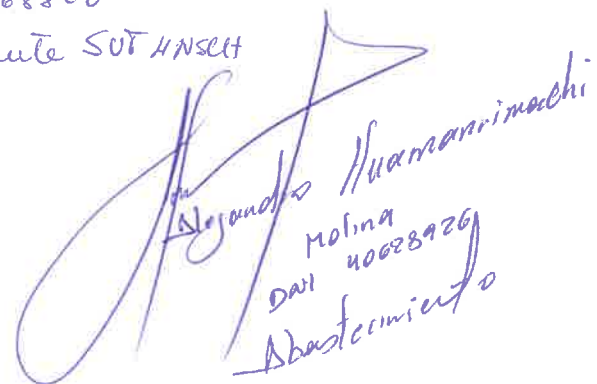 SUT HNSCH
Alejandro Huamanrimachi
Molina
DNI 40628926
Abastecimiento